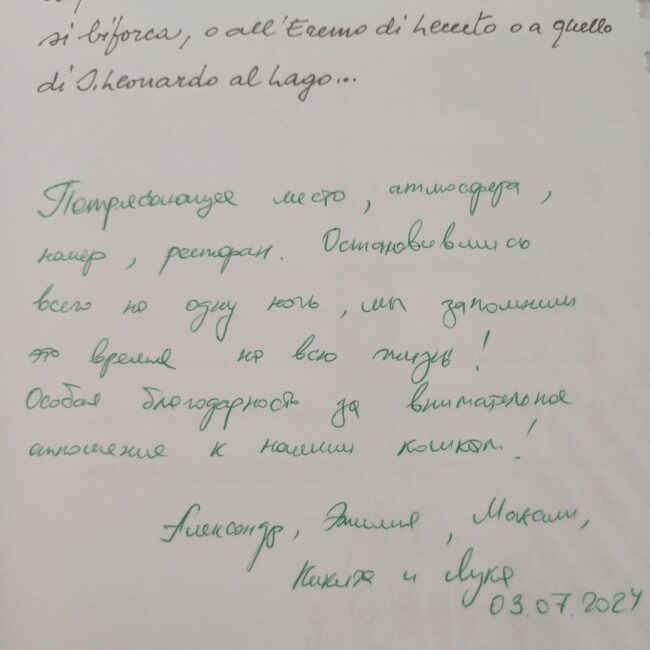 si biforca, o all'Eremo di Lecceto o a quello
di S. Leonardo al Lago...
Потрясающее место, атмосфера,
номер, ресторан. Остановившись
всего на одну ночь, мы запомним
это время на всю жизнь!
Особая благодарность за внимательное
отношение к нашим кошкам!
Александр, Эмилия,
Никита и Лука
03.07.2024